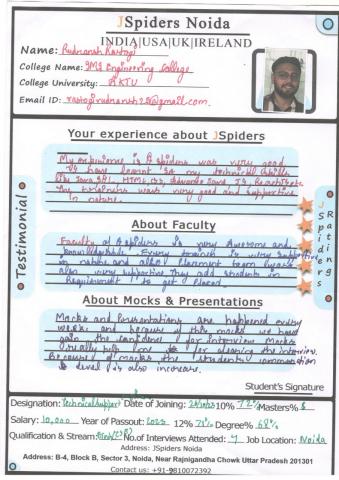 JSpiders Noida
INDIA|USA|UK|IRELAND
Name: Rudransh Rastogi
College Name: IMS Engineering College
College University: AKTU
Email ID: rastogirudransh25@gmail.com
Your experience about JSpiders
My experience is JSpiders was very good
I have learnt my technical skills
like Java, SQL, HTML, CSS, Advanced Java, JS, React
The trainers were very good and supportive
in nature.
About Faculty
Faculty of JSpiders is very Awesome and
knowledgable. Every trainer is very supportive
in nature and also Placement team
also very supportive. They add students in
Requirement to get placed.
About Mocks & Presentations
Mocks and Presentations are happened every
week and because of this mocks we have
gain the confidence for interview. Mocks
really help me for clearing the interview.
Because of mocks the students communication
level is also increase.
Testimonial
JSpiders
Rating
Student's Signature
Designation: Technical Support Date of Joining: 10% 72% Masters%
Salary: 20,000 Year of Passout: 2022 12% 71% Degree% 68%
Qualification & Stream: No.of Interviews Attended: Job Location: Noida
Address: JSpiders Noida
Address: B-4, Block B, Sector 3, Noida, Near Rajnigandha Chowk Uttar Pradesh 201301
Contact us: +91-9810072392